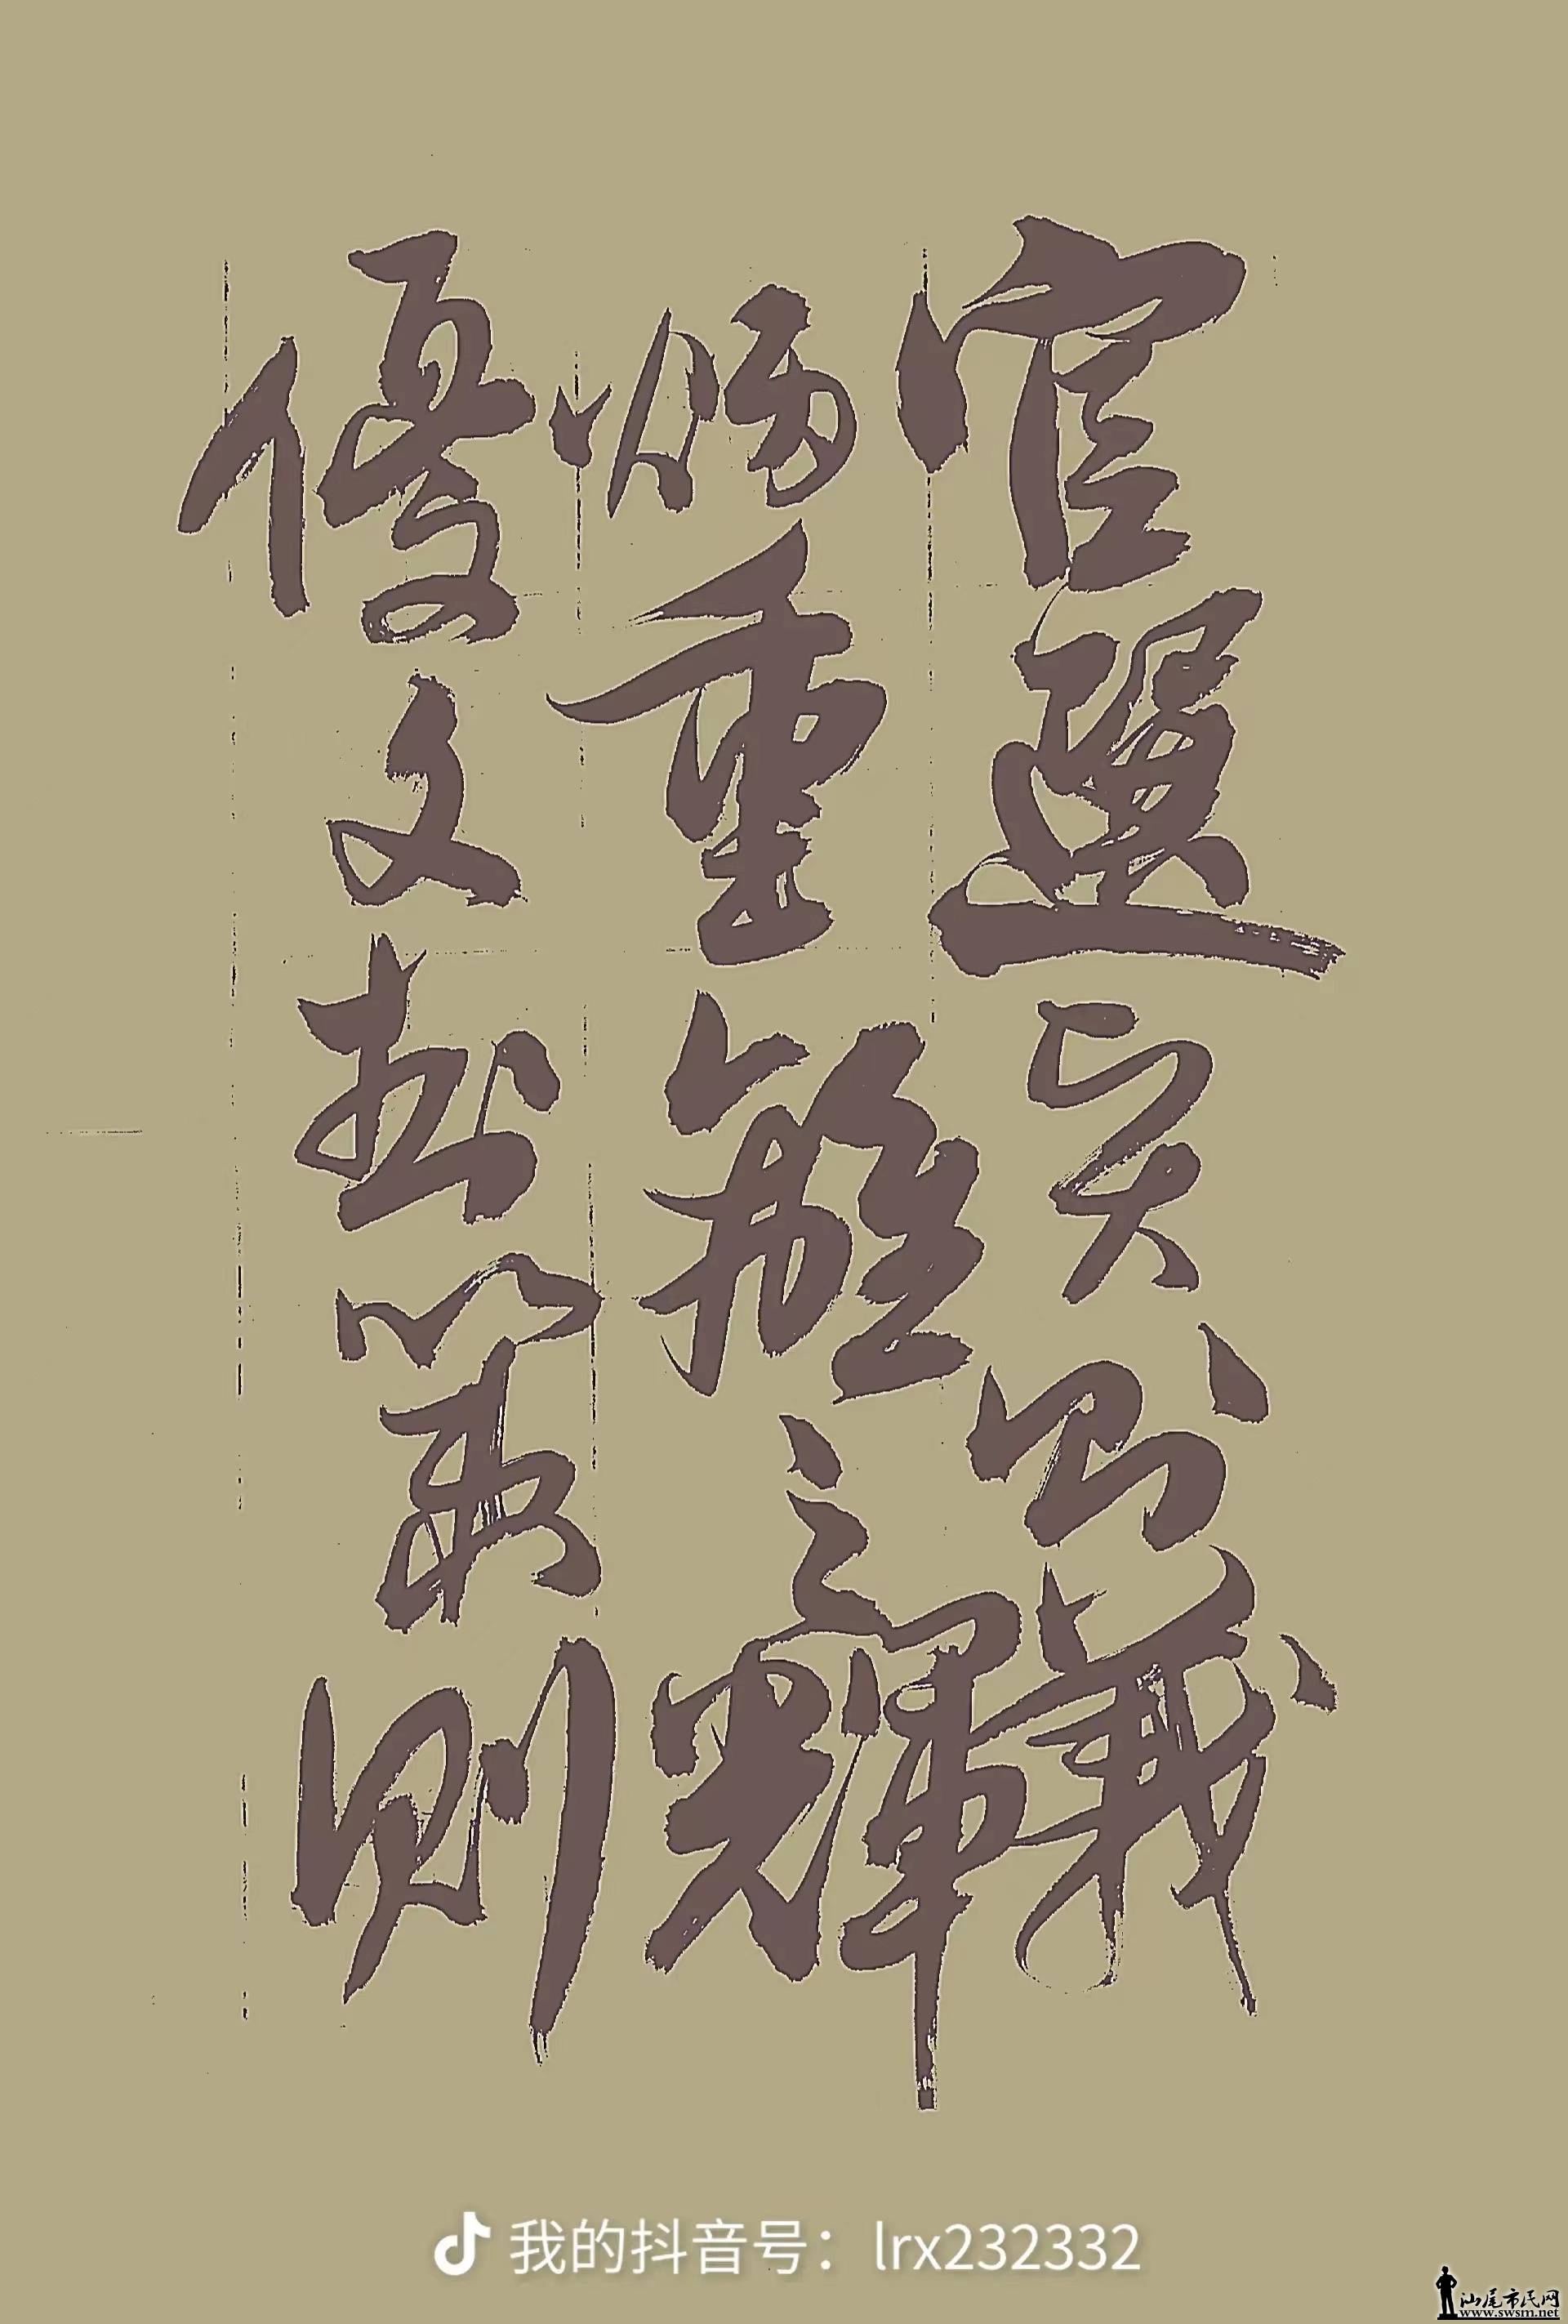 官選 義
炳重離之輝
優文 以 則
我的抖音号：lrx232332
汕尾市民网
www.swsm.net